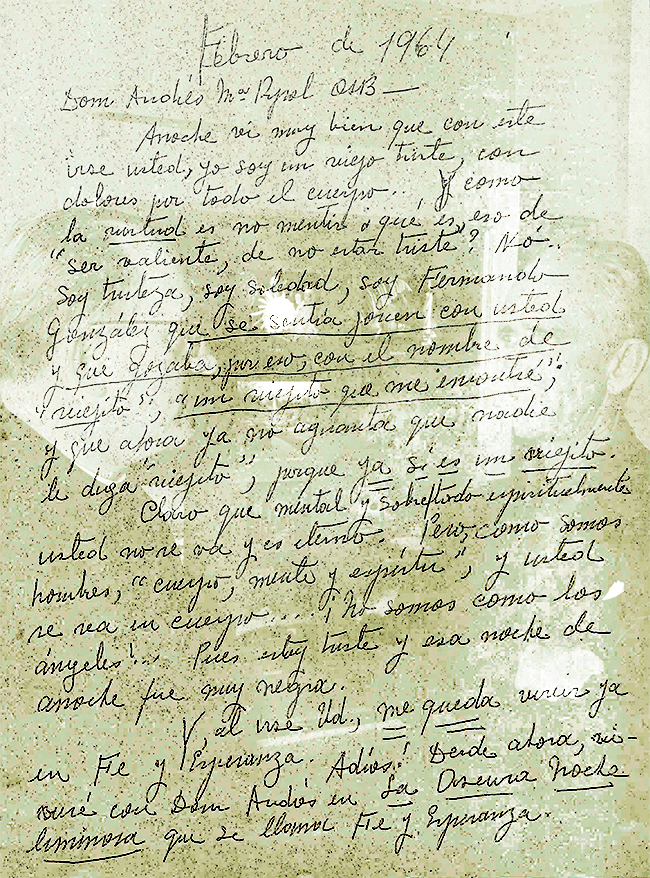 Febrero de 1964
Dom Andrés Mª Ripol OSB —
Anoche vi muy bien que con este
irse usted, yo soy un viejo triste, con
dolores por todo el cuerpo... Y como
la virtud es no mentir ¿qué es, eso de
"ser valiente, de no estar triste"? Nó..
Soy tristeza, soy soledad, soy Fernando
González que se sentía joven con usted
y que gozaba, por eso, con el nombre de
"viejito", "un viejito que me encontré";
y que ahora ya no aguanta que nadie
le diga "viejito", porque ya sí es un viejito.
Claro que mental y sobre todo espiritualmente
usted no se va y es eterno. Pero, como somos
hombres, "cuerpo, mente y espíritu", y usted
se va en cuerpo.... ¡no somos como los
ángeles!... Pues estoy triste y esa noche de
anoche fue muy negra.
Y, al irse Ud., me queda vivir ya
en Fe y Esperanza. Adios! Desde ahora, vi-
viré con Dom Andrés en La Oscura Noche
luminosa que se llama Fe y Esperanza.